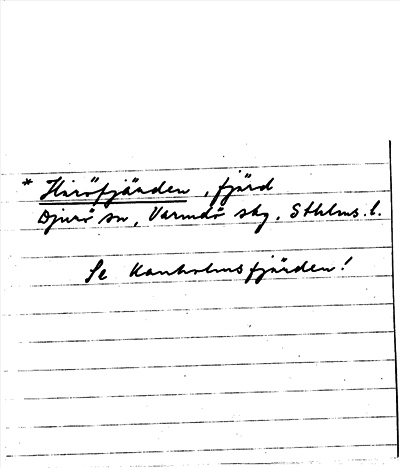 * Hisöfjärden, fjärd
Djurö sn, Värmdö skg. Sthlms. l.
Se Kanholmsfjärden!